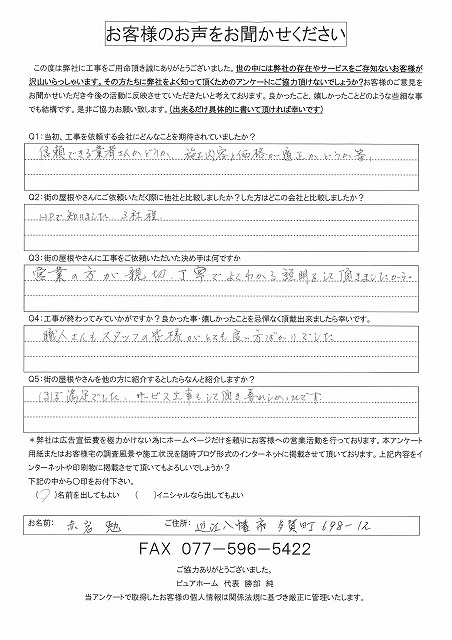 お客様のお声をお聞かせください
この度は弊社に工事をご用命頂き誠にありがとうございました。世の中には弊社の存在やサービスをご存知ないお客様が
沢山いらっしゃいます。その方たちに弊社をよく知って頂くためのアンケートにご協力頂けないでしょうか?お客様のご意見を
お聞かせいただき今後の活動に反映させていただきたいと考えております。良かったこと、嬉しかったことどのような些細な事
でも結構です。是非ご協力お願い致します。(出来るだけ具体的に書いて頂ければ幸いです)
Q1:当初、工事を依頼する会社にどんなことを期待されていましたか?
信頼できる業者さんかどうか、施工内容と価格が適正かどうか等。
Q2:街の屋根やさんにご依頼いただく際に他社と比較しましたか?した方はどこの会社と比較しましたか?
HPで知りました 3社程
Q3:街の屋根やさんに工事をご依頼いただいた決め手は何ですか
営業の方が親切、丁寧でよくわかる説明をして頂きましたから。
Q4:工事が終わってみていかがですか?良かった事・嬉しかったことを忌憚なく頂戴出来ましたら幸いです。
職人さんもスタッフの皆様がとても良い方ばかりでした
Q5:街の屋根やさんを他の方に紹介するとしたらなんと紹介しますか?
ほぼ満足でした、サービス工事もして頂き
*弊社は広告宣伝費を極力かけない為にホームページだけを頼りにお客様への営業活動を行っております。本アンケート
用紙またはお客様宅の調査風景や施工状況を随時ブログ形式のインターネットに掲載させて頂いております。上記内容をイ
ンターネットや印刷物に掲載させて頂いてもよろしいでしょうか?
下記の中から〇印をお付下さい。
(〇)名前を出してもよい ( )イニシャルなら出してもよい
お名前: 赤岩 勉 ご住所: 近江八幡市多賀町698-12
FAX 077-596-5422
ご協力ありがとうございました。
ピュアホーム 代表 勝部 純
当アンケートで取得したお客様の個人情報は関係法規に基づき厳正に管理いたします。